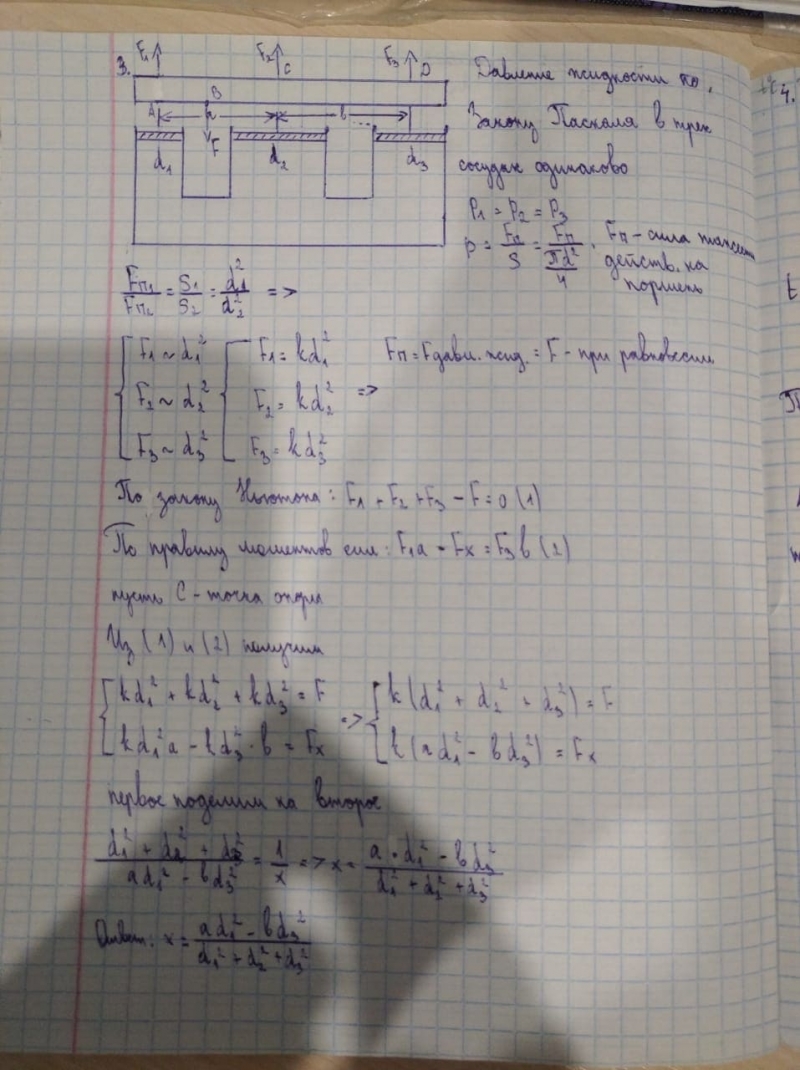 3. F₁ F₂ C F₃ D
B
A a b
F
d₁ d₂ d₃
Давление жидкости по
Закону Паскаля в трех
сосудах одинаково
P₁ = P₂ = P₃
p = Fп/S = Fп/(πd²/4). Fп - сила
действ. на
поршень
Fп₁/Fп₂ = S₁/S₂ = d₁²/d₂² =>
F₁ ~ d₁² F₁ = kd₁² Fп = Fдавл. жид. = F - при равновесии
F₂ ~ d₂² F₂ = kd₂² =>
F₃ ~ d₃² F₃ = kd₃²
По закону Ньютона: F₁ + F₂ + F₃ - F = 0 (1)
По правилу моментов сил: F₁a - Fx = F₃b (2)
пусть C - точка опоры
Из (1) и (2) получим
kd₁² + kd₂² + kd₃² = F => k(d₁² + d₂² + d₃²) = F
kd₁²a - kd₃²·b = Fx k(ad₁² - bd₃²) = Fx
первое поделим на второе
(d₁² + d₂² + d₃²)/(ad₁² - bd₃²) = 1/x => x = (a·d₁² - bd₃²)/(d₁² + d₂² + d₃²)
Ответ: x = (ad₁² - bd₃²)/(d₁² + d₂² + d₃²)
4.